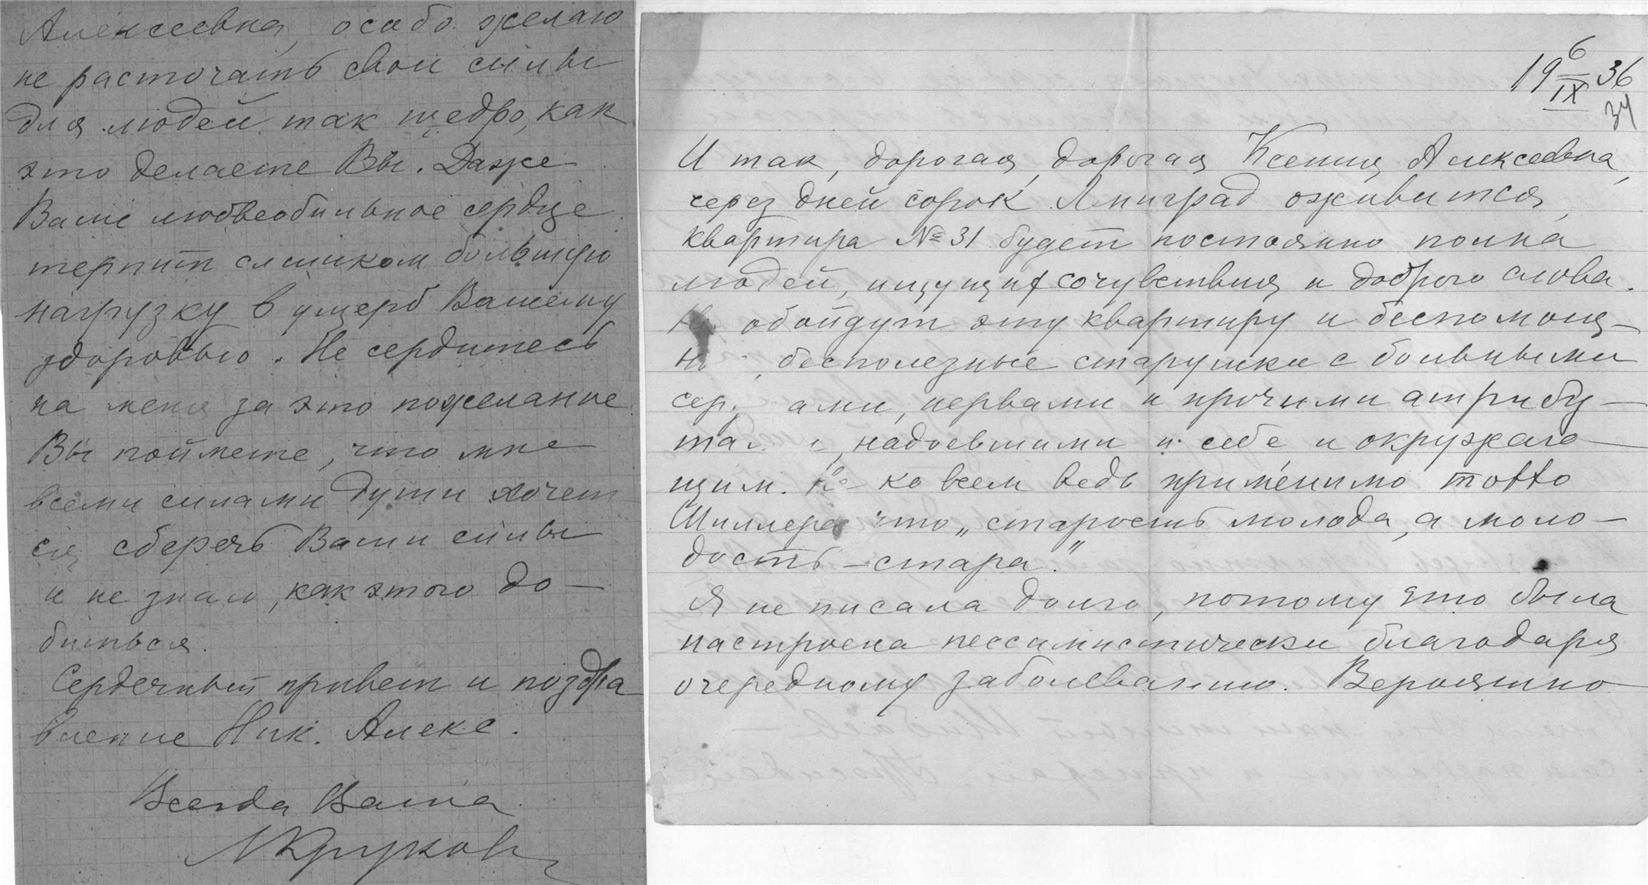 Алексеевна, особо желаю
не расточать свои силы
для людей так щедро, как
это делаете Вы. Даже
Ваше любвеобильное сердце
терпит слишком большую
нагрузку в ущерб Вашему
здоровью. Не сердитесь
на меня за это пожелание
Вы поймете, что мне
всеми силами души хочет
ся сберечь Ваши силы
и не знаю, как этого до-
биться.
Сердечный привет и поздра
вление Ник. Алекс.
Всегда Ваша
МКрукова
19 6/IX 36
34
И так, дорогая, дорогая Ксения Алексеевна,
через дней сорок Лниград оживится,
квартира № 31 будет постоянно полна
людей, ищущих сочувствия и доброго слова.
обойдут эту квартиру и беспомощ-
бесполезные старушки с больными
сер ами, нервами и прочими атрибу-
та надоевшими и себе и окружаю-
щим. Не ко всем ведь применимо motto
Шиллера что „старость молода, а моло-
дость - стара."
Я не писала долго, потому что была
настроена пессимистически благодаря
очередному заболеванию. Вероятно